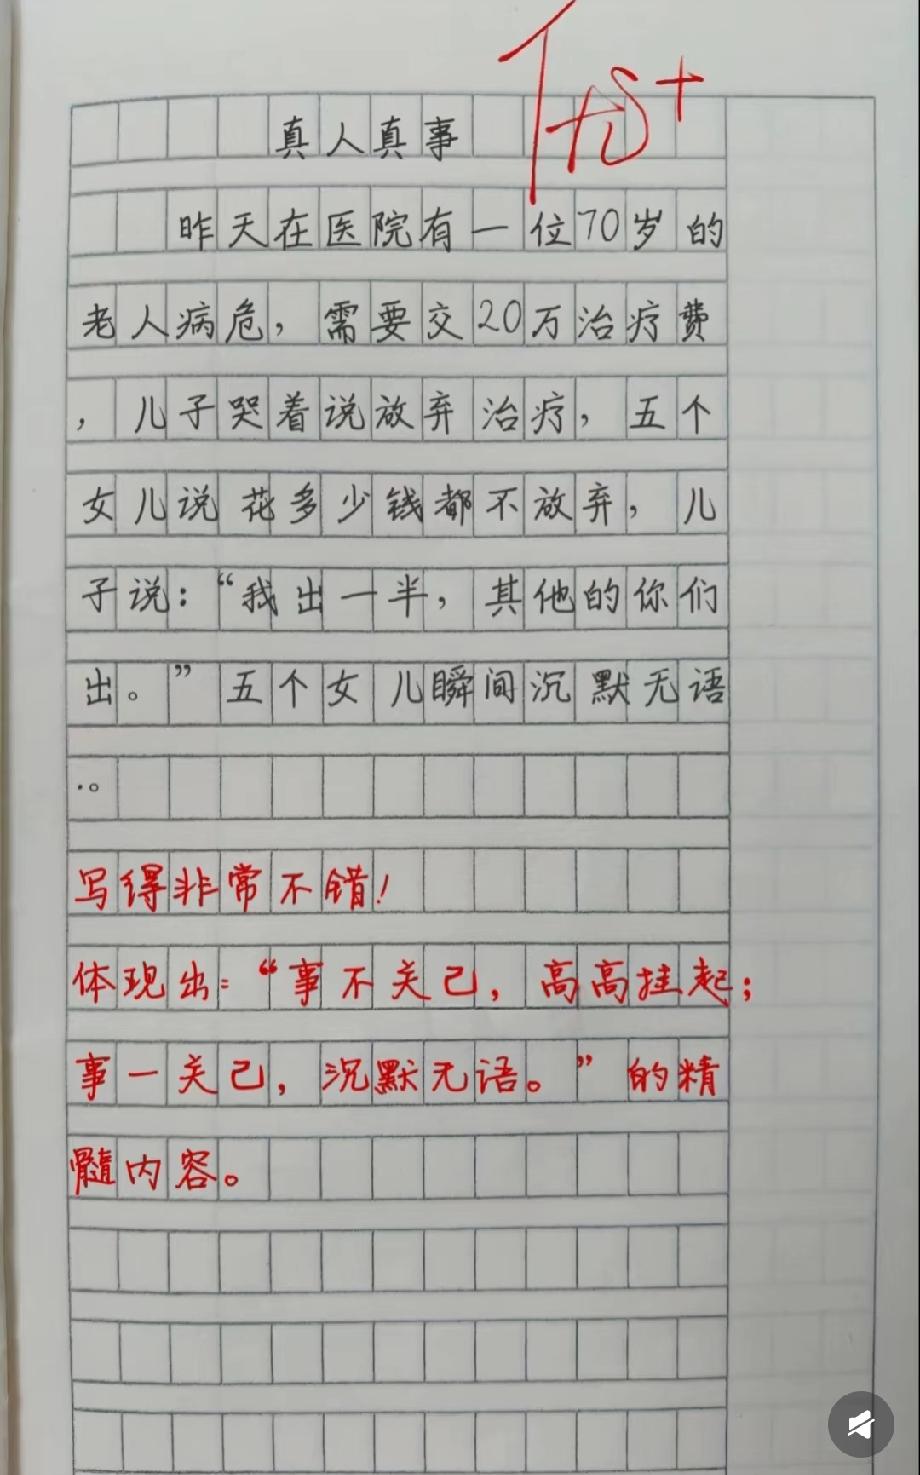 真人真事
优+
昨天在医院有一位70岁的
老人病危，需要交20万治疗费
，儿子哭着说放弃治疗，五个
女儿说花多少钱都不放弃，儿
子说：“我出一半，其他的你们
出。”五个女儿瞬间沉默无语
.。
写得非常不错！
体现出：“事不关己，高高挂起；
事一关己，沉默无语。”的精
髓内容。